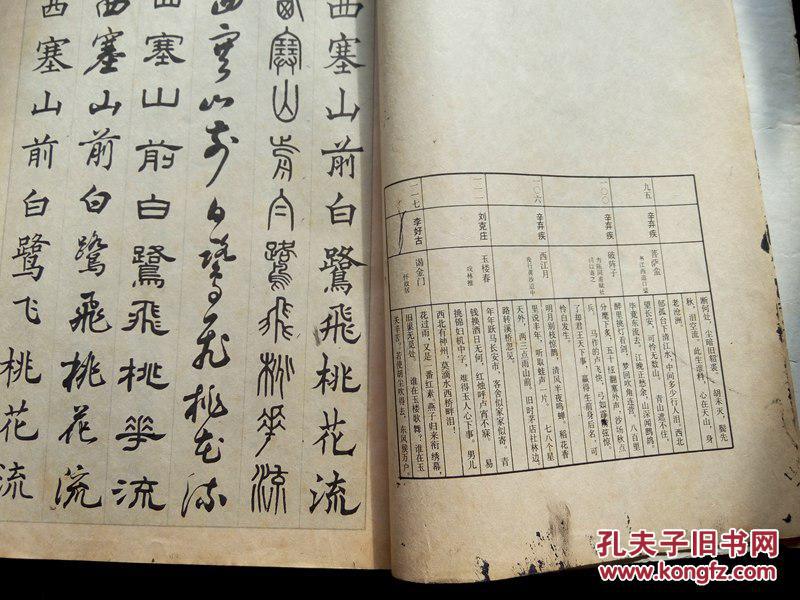 断何处,尘暗旧貂裘。 胡未灭,鬓先
秋,泪空流。此生谁料,心在天山,身
老沧洲
九五
辛弃疾
菩萨蛮
书江西造口壁
郁孤台下清江水,中间多少行人泪。西北
望长安,可怜无数山。 青山遮不住,
毕竟东流去。江晚正愁余,山深闻鹧鸪。
一〇〇
辛弃疾
破阵子
醉里挑灯看剑,梦回吹角连营。八百里
分麾下炙,五十弦翻塞外声,沙场秋点
兵。 马作的卢飞快,弓如霹雳弦惊。
了却君王天下事,赢得生前身后名。可
怜白发生。
一〇六
辛弃疾
西江月
夜行黄沙道中
明月别枝惊鹊,清风半夜鸣蝉。稻花香
里说丰年,听取蛙声一片。 七八个星
天外,两三点雨山前。旧时茅店社林边,
路转溪桥忽见。
刘克庄
玉楼春
戏林推
年年跃马长安市,客舍似家家似寄。青
钱换酒日无何,红烛呼卢宵不寐。 易
挑锦妇机中字,难得玉人心下事。男儿
西北有神州,莫滴水西桥畔泪!
一一七
李好古
谒金门
怀故居
花过雨,又是一番红素。燕子归来衔绣幕,
旧巢无觅处。 谁在玉楼歌舞,谁在玉
关辛苦。若使胡尘吹得去,东风侯万户。
西塞山前白鹭飛桃花流
西塞山前白鷺飛桃華流
西塞山前白鷺飛桃花流
西塞山前白鷺飛桃華流
西塞山前白鹭飛桃花流
西塞山前白鹭飞桃花流
孔夫子旧书网
www.kongfz.com